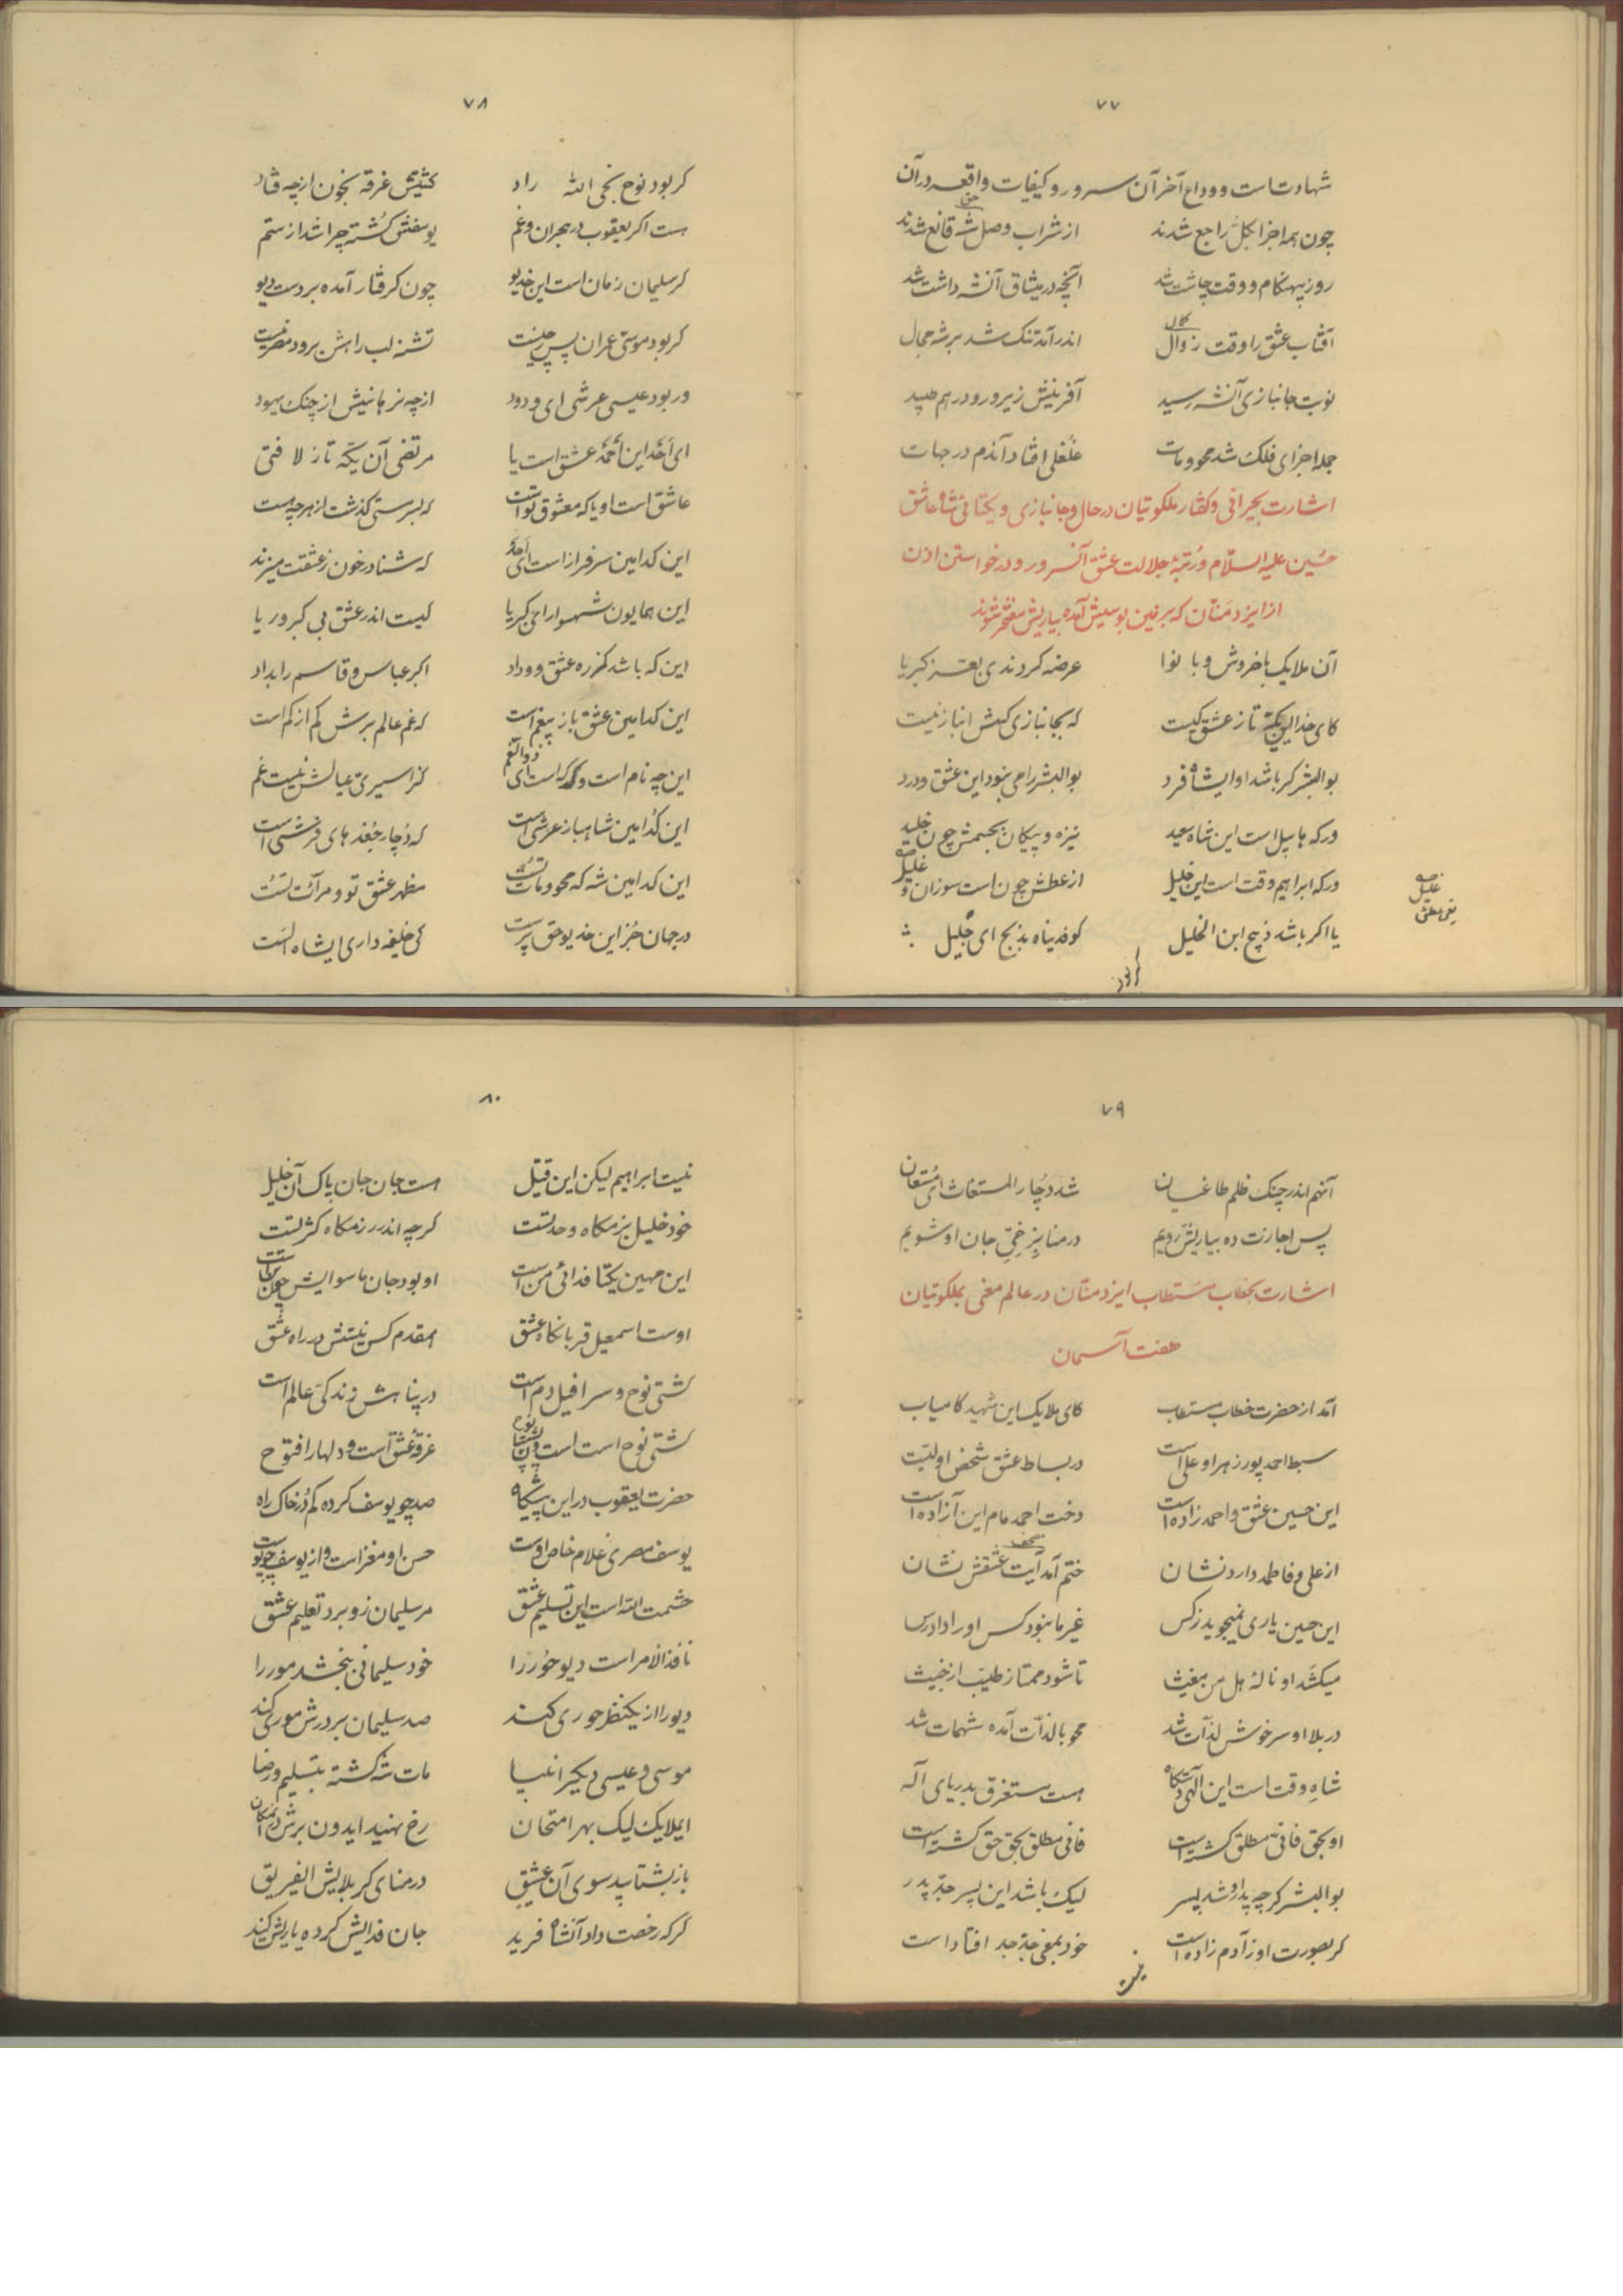 ۷۷
شهادتست و وداع آخر آن سرور و کیفیات واقعه در آن
چون همه اجزا بکل راجع شدند از شراب وصل شه قانع شدند
روز بیهنگام و وقت چاشت شد آنچه در میثاق آنشه داشت شد
آفتاب عشق را وقت زوال اندر آمد تنگ شد بر شه مجال
نوبت جانبازی آنشه رسید آفرینش زیر و رو درهم
جمله اجزای فلک شد محو و مات غلغلی افتاد آندم در جهات
اشارت بحیرانی و گفتار ملکوتیان در حال و جانبازی و یکتائی شاه عاشق
حسین علیه السلام و رتبهٔ جلالت عشق آنسرور و درخواستن اذن
از ایزد منان که بزمین بوسیش آمده بیاریش مفتخر شوند
آن ملایک باخروش و با نوا عرضه کردندی بعز کبریا
کای خدا این یکه تاز عشق کیست که بجانبازی کسش انباز نیست
بوالبشر گر باشد او ایشاه فرد بوالبشر را می نبود این عشق و درد
ور که هابیل است این شاه سعید نیزه و پیکان بجسمش چون خلید
ور که ابراهیم وقت است این خلیل از عطش چون است سوزان و غلیل
غلیل
یعنی عطش
یا اگر باشد ذبیح ابن الخلیل کو فدیناه بذبح ای جلیل
گر بود
۷۸
گر بود نوح نجی الله راد کشتیش غرقه بخون از چه فتاد
هست اگر یعقوب در هجران و غم یوسفش کشته چرا شد از ستم
گر سلیمان زمان است این خدیو چون گرفتار آمده بر دست دیو
گر بود موسی عمران پس چیست تشنه لب راهش برود مصر نیست
ور بود عیسی عرشی ای ودود از چه نرهانیش از چنگ یهود
ای احد این احمد عشق است یا مرتضی آن یکه تاز لا فتی
عاشق است او یا که معشوق تو است که بسرستی گذشت از هر چه هست
این کدامین سرفراز است ای احد که شنا در خون ز عشقت میزند
این همایون شهسوار ای کبریا کیست اندر عشق بی کبر و ریا
این که باشد کز ره عشق و وداد اکبر عباس و قاسم را بداد
این کدامین عشق باز بیغم است که غم عالم برش کم از کم است
این چه نام است و که است ای ذوالنعم کز اسیری عیالش نیست غم
این کدامین شاهباز عرشی است که دچار جغدهای فرشی است
این کدامین شه که محو و مات تست مظهر عشق تو و مرآت تست
در جهان جز این خدیو حق پرست کی خلیفه داری ایشاه الست
۷۹
آنهم اندر چنگ ظلم طاغیان شد دچار المستغاث ای مستعان
پس اجازت ده بیاریش رویم در منا بز جان او شویم
اشارت بخطاب مستطاب ایزد منان در عالم معنی بملکوتیان
هفت آسمان
آمد از حضرت خطاب مستطاب کای ملایک این شهید کامیاب
سبط احمد پور زهرا و علی است در بساط عشق شخص اولیست
این حسین عشق و احمد زاده است دخت احمد مام این آزاده است
از علی و فاطمه دارد نشان ختم آمد آیت عشقش نشان
این حسین یاری نمیجوید ز کس غیر ما نبود کس او را دادرس
میکشد او نالهٔ هل من مغیث تا شود ممتاز طیب از خبیث
در بلا او سرخوش لذات شد محو بالذات آمده شهمات شد
شاه وقت است این الهی دستگاه هست مستغرق بدریای آله
او بحق فانی مطلق گشته است فانی مطلق بحق حق گشته است
بوالبشر گرچه پدر او شد پسر لیک باشد این پسر جد پدر
گر بصورت او ز آدم زاده است خود بمعنی جد جد افتاد است
نیست
۸۰
نیست ابراهیم لیکن این قتیل هست جان جان پاک آن خلیل
خود خلیل بزمگاه وحدتست گرچه اندر رزمگاه کثرتست
این مهین یکتا فدائی من است او بود جان ماسوایش
اوست اسمعیل قربانگاه عشق همقدم کس نیستش در راه عشق
کشتی نوح و سرافیل دم است در پناهش زندگی عالم است
کشتی نوح است است پشتیبان نوح غرقهٔ عشق است و دلها را فتوح
حضرت یعقوب در این پیشگاه صد چو یوسف کرده گم در خاک راه
یوسف مصری غلام خاص اوست حسن او مغز است و از یوسف چو پوست
حشمت الله است این تسلیم عشق مر سلیمان زو برد تعلیم عشق
نافذ الامر است دیو و حور را خود سلیمانی ببخشد مور را
دیو را از یکنظر حوری کند صد سلیمان بر درش موری کند
موسی و عیسی دیگر انبیا مات شه گشته بتسلیم و رضا
ایملایک لیک بهر امتحان رخ نهید ایدون برش
باز بشتابید سوی آن عشیق در منای کربلایش الفریق
گر که رخصت داد آنشاه فرید جان فدایش کرده یاریش کنید